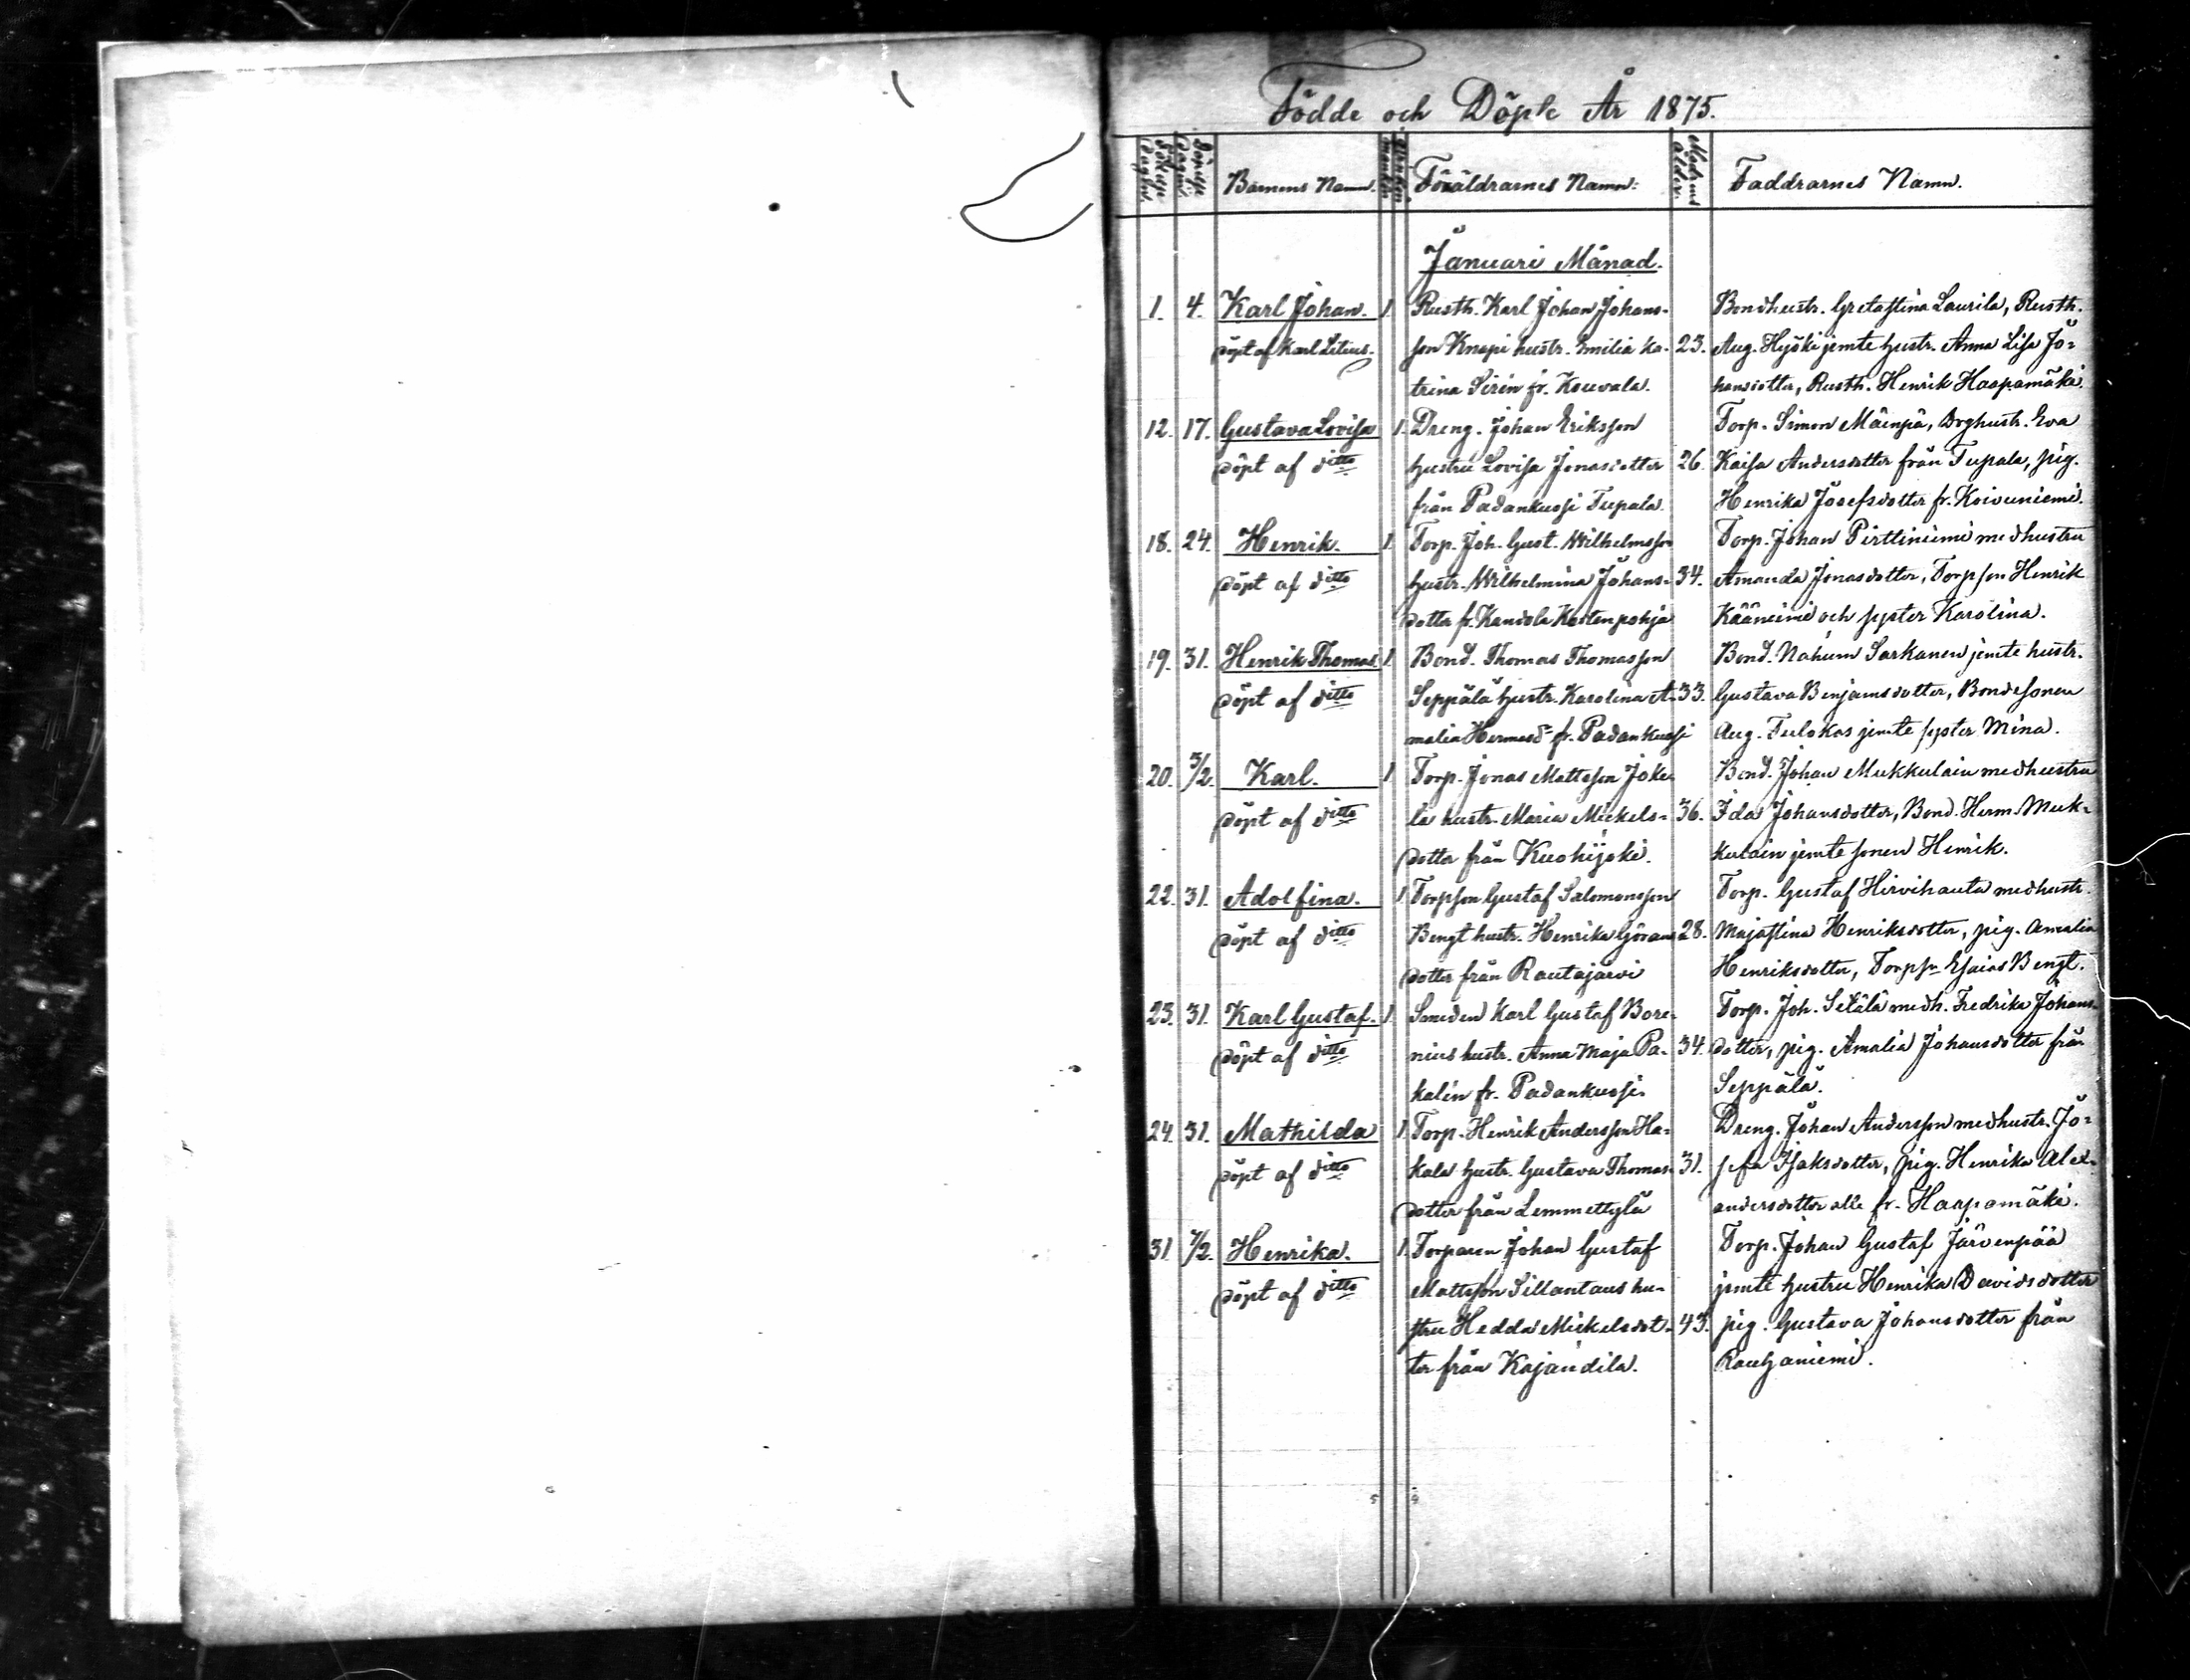 Födde och Döpte År 1875.
Födelse Dagen. Döpelse Dagen. Barnens Namn. Mankön Qvinkön Föräldrarnes Namn: Modrens ålder. Faddrarnes Namn.
Januari Månad.
1. 4. Karl Johan. 1. Rusth. Karl Johan Johans- Bondhustr. Gretastina Laurila, Rusth.
döpt af Karl Litius. son Knapi hustr. Emilia Ka- 23. Aug. Hyöki jemte hustr. Anna Lisa Jo-
trina Sirén fr. Kouvala. hansdotter, Rusth. Henrik Haapamäki.
12. 17. Gustava Lovisa 1. Dreng. Johan Eriksson Torp. Simon Mäenpä, Drghustr. Eva
döpt af ditto hustru Lovisa Jonasdotter 26. Kaisa Andersdotter från Tupala, pig.
från Padankussi Tupala. Henrika Josefsdotter fr. Koivuniemi.
18. 24. Henrik. 1. Torp. Joh. Gust. Wilhelmsson Torp. Johan Pirttiniemi med hustru
döpt af ditto hustr. Wilhelmina Johans- 34. Amanda Jonasdotter, Torpson Henrik
dotter fr. Kandola Kostenpohja Kääniemi och syster Karolina.
19. 31. Henrik Thomas. 1. Bond. Thomas Thomasson Bond. Nahum Sarkanen jemte hustr.
döpt af ditto Seppälä hustr. Karolina A- 33. Gustava Benjamsdotter, Bondesonen
malia Hermasd:r fr. Padankussi Aug. Tulokas jemte syster Mina.
20. 5/2. Karl. 1 Torp. Jonas Mattsson Joke- Bond. Johan Mukkulain med hustru
döpt af ditto la hustr. Maria Mickels- 36. Ida Johansdotter, Bond. Herm. Muk-
dotter från Kuohijoki. kulain jemte sonen Henrik.
22. 31. Adolfina. 1 Torpson Gustaf Salomonsson Torp. Gustaf Hirvihauta med hustr.
döpt af ditto Bengt hustr. Henrika Görans 28. Majastina Henriksdotter, pig. Amalia
dotter från Rautajärvi Henriksdotter, Torpsn Esaias Bengt.
23. 31. Karl Gustaf. 1. Smeden Karl Gustaf Bore- Torp. Joh. Setälä medh. Fredrika Johans-
döpt af ditto nius hustr. Anna Maja Pa- 34. dotter, pig. Amalia Johansdotter från
kalén fr. Padankussi. Seppälä.
24. 31. Mathilda 1. Torp. Henrik Andersson Ha- Dreng. Johan Andersson med hustr. Jo-
döpt af ditto kala hustr. Gustava Thomas- 31. sefa Isaksdotter, pig. Henrika Alex-
dotter från Lemmettylä andersdotter alle fr. Haapamäki.
31. 7/2. Henrika. 1. Torparen Johan Gustaf Torp. Johan Gustaf Järvenpää
döpt af ditto Mattsson Sillantaus hu- jemte hustru Henrika Davidsdotter
stru Hedda Mickelsdot- 43. pig. Gustava Johansdotter från
ter från Kajandila. Rauhaniemi.